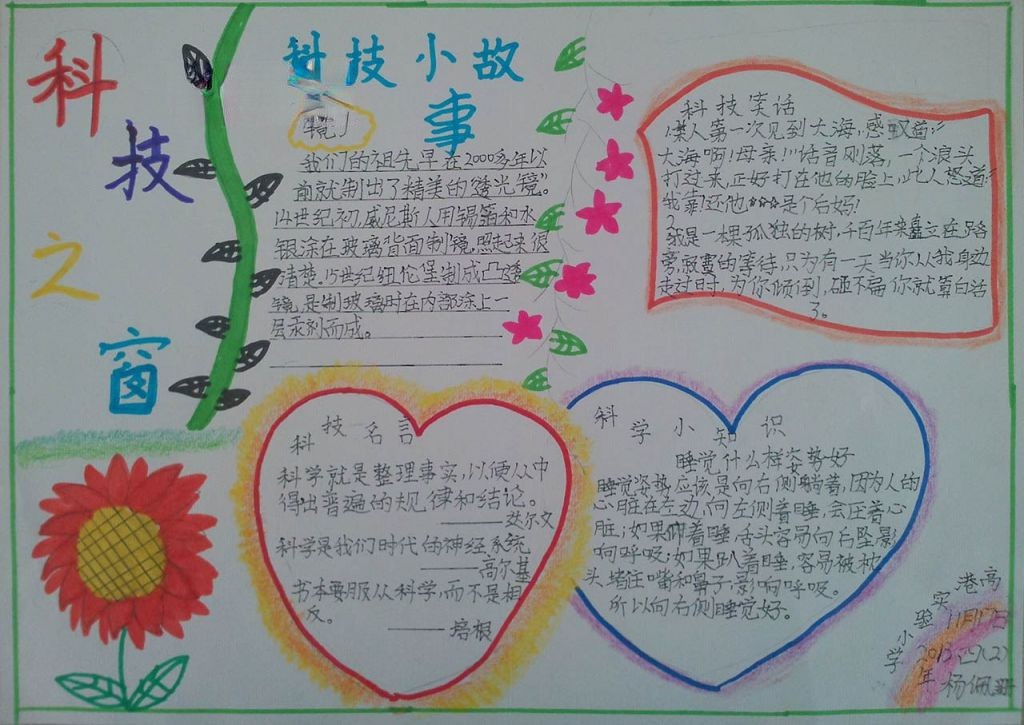 科技之窗
科技小故事
镜
我们的祖先早在2000多年以
前就制出了精美的“透光镜”。
14世纪初,威尼斯人用锡箔和水
银涂在玻璃背面制镜,照起来很
清楚.15世纪纽伦堡制成凸透
镜,是制玻璃时在内部涂上一
层汞剂而成。
科技笑话
1某人第一次见到大海,感叹道:“
大海啊!母亲!”话音刚落,一个浪头
打过来,正好打在他的脸上,此人怒道:“
我靠!还他☆☆☆是个后妈!
2我是一棵孤独的树,千百年来矗立在路
旁,寂寞的等待,只为有一天当你从我身边
走过时,为你倾倒,砸不扁你就算白活
了。
科技名言
科学就是整理事实,以便从中
得出普遍的规律和结论。
——艾尔文
科学是我们时代的神经系统
——高尔基
书本要服从科学,而不是相
反。
——培根
科学小知识
睡觉什么样姿势好
睡觉姿势应该是向右侧躺着,因为人的
心脏在左边,向左侧着睡,会压着心
脏;如果仰着睡,舌头容易向右坠,影
响呼吸;如果趴着睡,容易被枕
头堵住嘴和鼻子,影响呼吸。
所以向右侧睡觉好。
港高
实验小学
11月17日
2013年
四(2)
杨佩